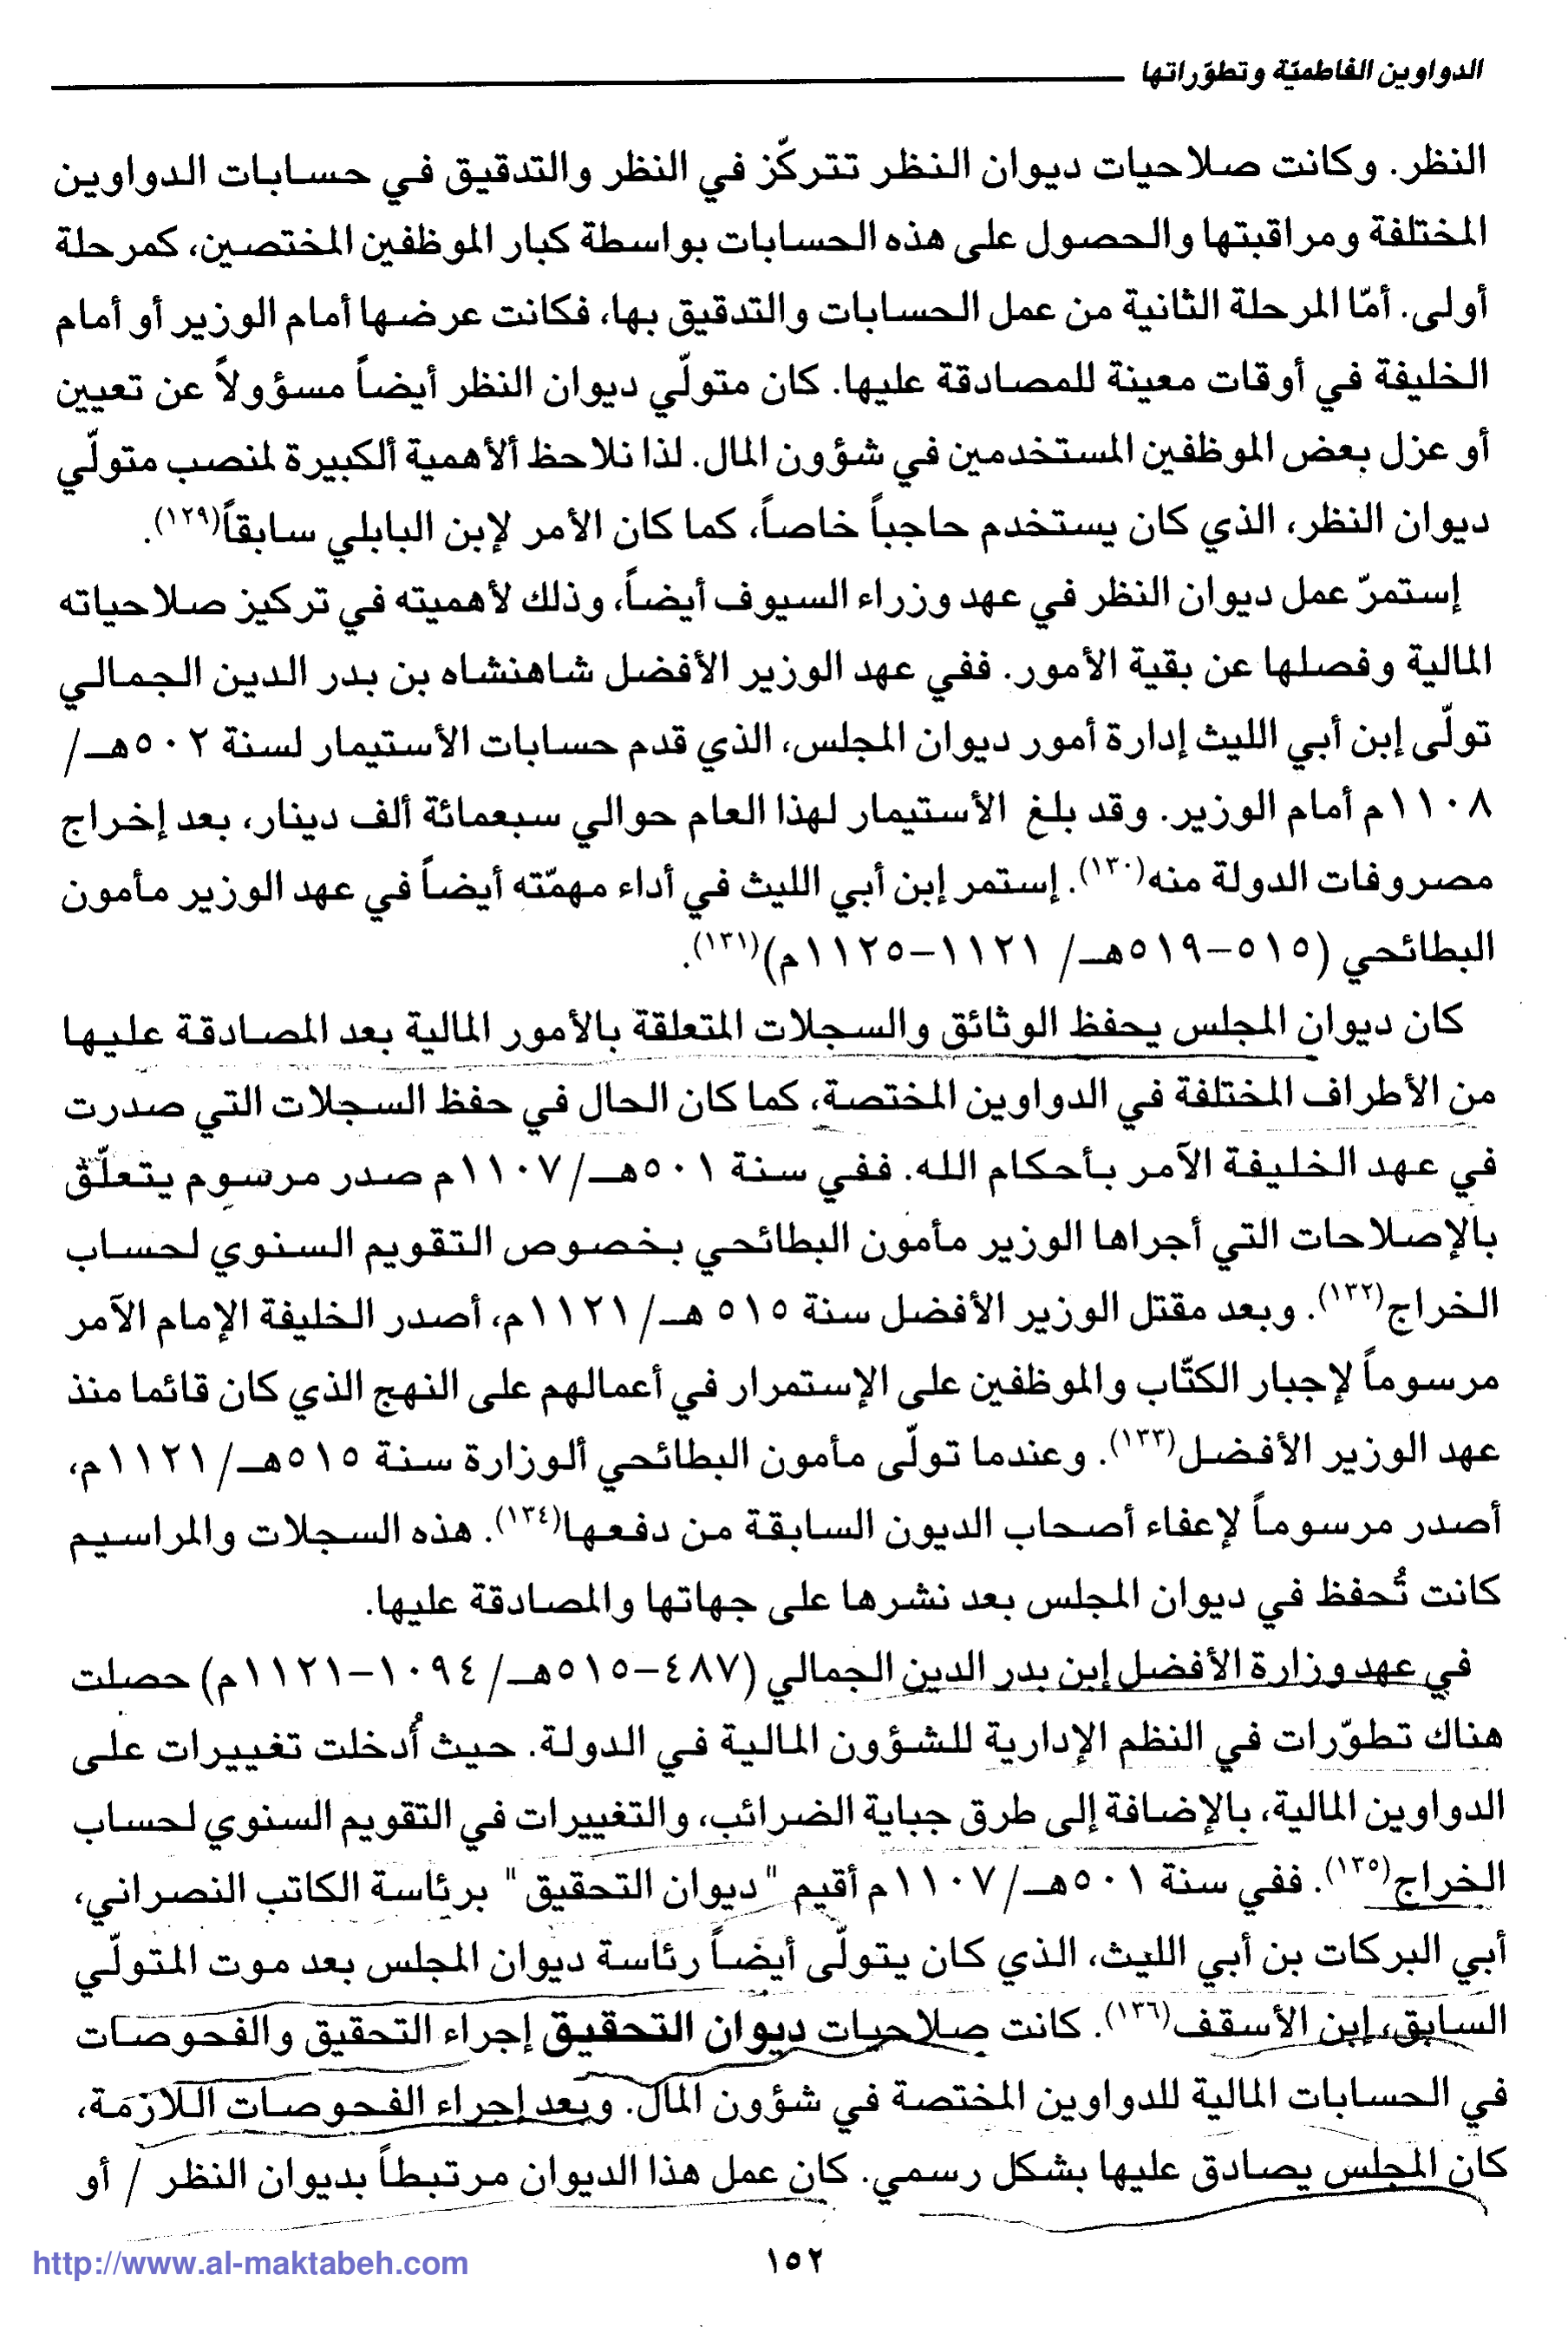 الدواوين الفاطميّة وتطوّراتها
النظر. وكانت صلاحيات ديوان النظر تتركّز في النظر والتدقيق في حسابات الدواوين
المختلفة ومراقبتها والحصول على هذه الحسابات بواسطة كبار الموظفين المختصين، كمرحلة
أولى. أمّا المرحلة الثانية من عمل الحسابات والتدقيق بها، فكانت عرضها أمام الوزير أو أمام
الخليفة في أوقات معينة للمصادقة عليها. كان متولّي ديوان النظر أيضاً مسؤولاً عن تعيين
أو عزل بعض الموظفين المستخدمين في شؤون المال. لذا نلاحظ ألأهمية ألكبيرة لمنصب متولّي
ديوان النظر، الذي كان يستخدم حاجباً خاصاً، كما كان الأمر لإبن البابلي سابقاً(١٢٩).
إستمرّ عمل ديوان النظر في عهد وزراء السيوف أيضاً، وذلك لأهميته في تركيز صلاحياته
المالية وفصلها عن بقية الأمور. ففي عهد الوزير الأفضل شاهنشاه بن بدر الدين الجمالي
تولّى إبن أبي الليث إدارة أمور ديوان المجلس، الذي قدم حسابات الأستيمار لسنة ٥٠٢هـ/
١١٠٨م أمام الوزير. وقد بلغ الأستيمار لهذا العام حوالي سبعمائة ألف دينار، بعد إخراج
مصروفات الدولة منه(١٣٠). إستمر إبن أبي الليث في أداء مهمّته أيضاً في عهد الوزير مأمون
البطائحي (٥١٥-٥١٩هـ/ ١١٢١-١١٢٥م)(١٣١).
كان ديوان المجلس يحفظ الوثائق والسجلات المتعلقة بالأمور المالية بعد المصادقة عليها
من الأطراف المختلفة في الدواوين المختصة، كما كان الحال في حفظ السجلات التي صدرت
في عهد الخليفة الآمر بأحكام الله. ففي سنة ٥٠١هـ/١١٠٧م صدر مرسوم يتعلّق
بالإصلاحات التي أجراها الوزير مأمون البطائحي بخصوص التقويم السنوي لحساب
الخراج(١٣٢). وبعد مقتل الوزير الأفضل سنة ٥١٥ هـ/١١٢١م، أصدر الخليفة الإمام الآمر
مرسوماً لإجبار الكتّاب والموظفين على الإستمرار في أعمالهم على النهج الذي كان قائما منذ
عهد الوزير الأفضل(١٣٣). وعندما تولّى مأمون البطائحي ألوزارة سنة ٥١٥هـ/١١٢١م،
أصدر مرسوماً لإعفاء أصحاب الديون السابقة من دفعها(١٣٤). هذه السجلات والمراسيم
كانت تُحفظ في ديوان المجلس بعد نشرها على جهاتها والمصادقة عليها.
في عهد وزارة الأفضل إبن بدر الدين الجمالي (٤٨٧-٥١٥هـ/١٠٩٤-١١٢١م) حصلت
هناك تطوّرات في النظم الإدارية للشؤون المالية في الدولة. حيث أُدخلت تغييرات على
الدواوين المالية، بالإضافة إلى طرق جباية الضرائب، والتغييرات في التقويم السنوي لحساب
الخراج(١٣٥). ففي سنة ٥٠١هـ/١١٠٧م أقيم "ديوان التحقيق" برئاسة الكاتب النصراني،
أبي البركات بن أبي الليث، الذي كان يتولّى أيضاً رئاسة ديوان المجلس بعد موت المتولّي
السابق، إبن الأسقف(١٣٦). كانت صلاحيات ديوان التحقيق إجراء التحقيق والفحوصات
في الحسابات المالية للدواوين المختصة في شؤون المال. وبعد إجراء الفحوصات اللازمة،
كان المجلس يصادق عليها بشكل رسمي. كان عمل هذا الديوان مرتبطاً بديوان النظر / أو
١٥٢
http://www.al-maktabeh.com